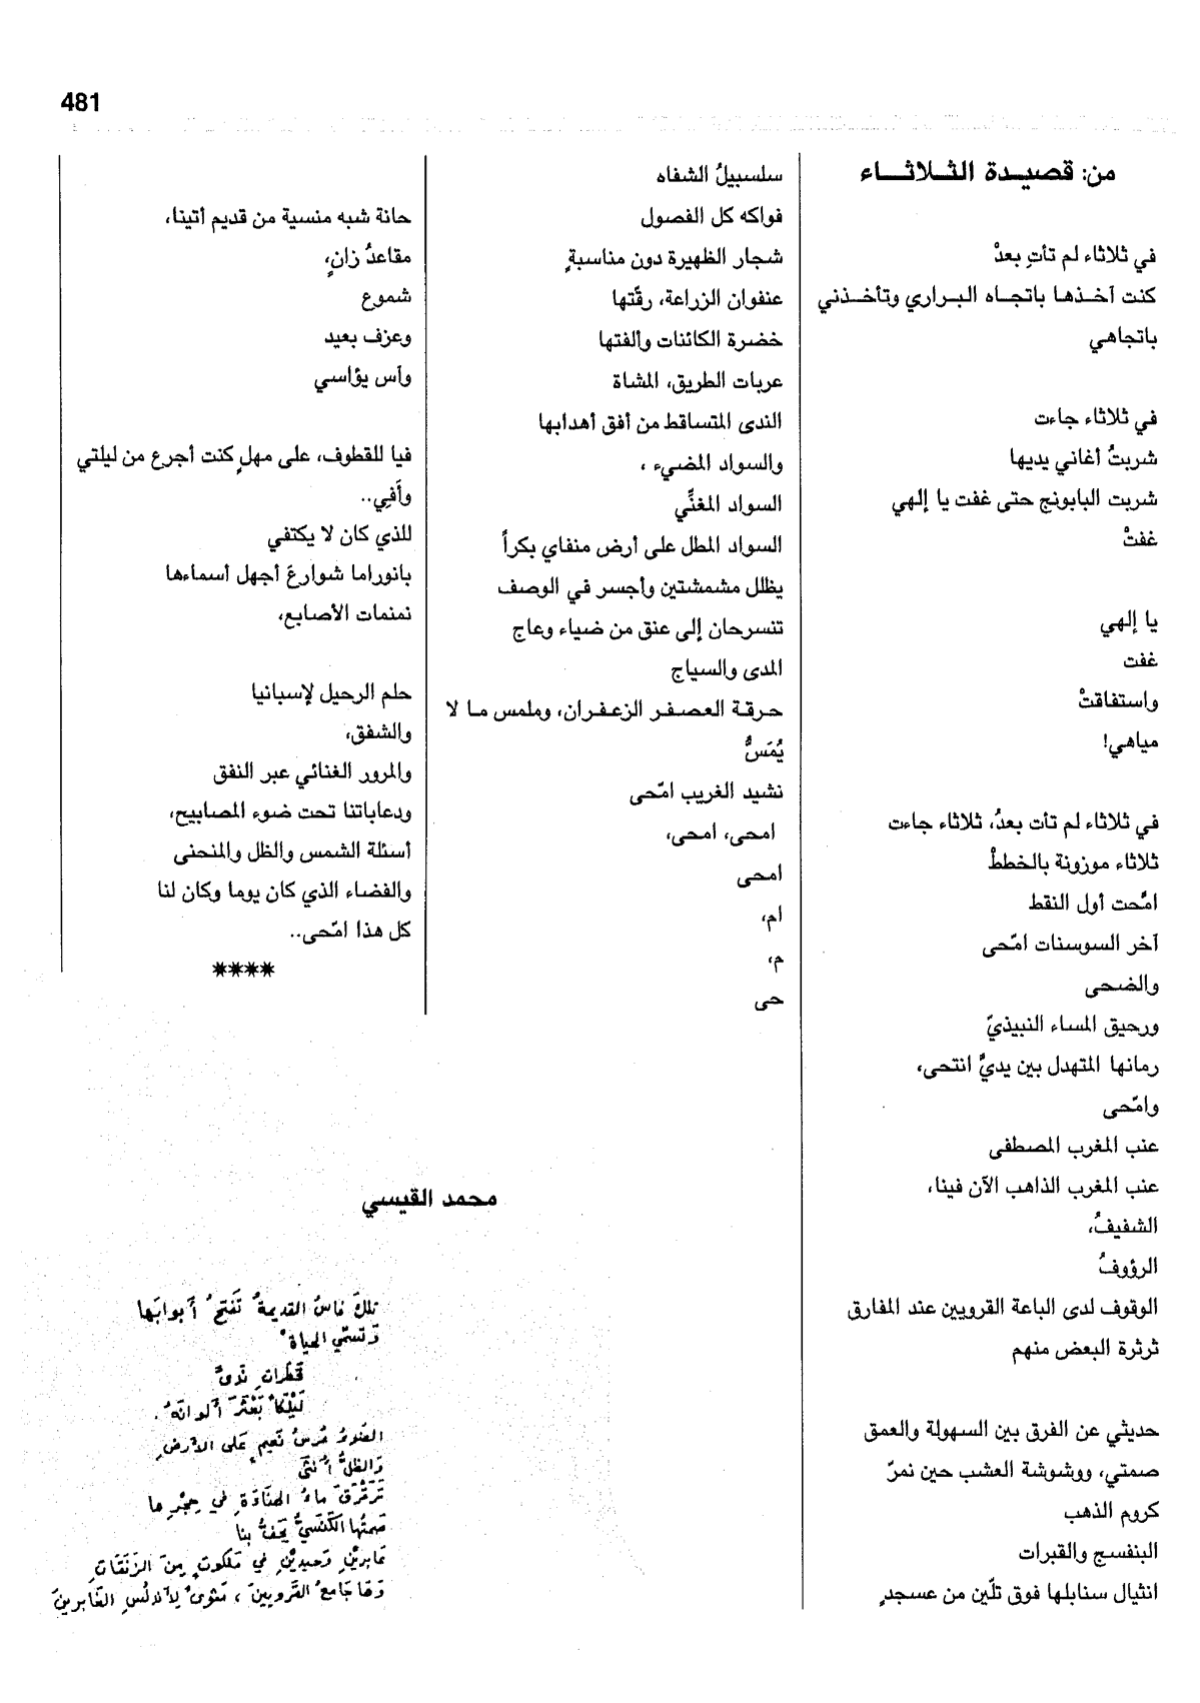 481
من: قصيدة الثلاثاء
في ثلاثاء لم تأتِ بعدْ
كنت آخذها باتجاه البراري وتأخذني
باتجاهي
في ثلاثاء جاءت
شربتُ أغاني يديها
شربت البابونج حتى غفت يا إلهي
غفتْ
يا إلهي
غفت
واستفاقتْ
مياهي!
في ثلاثاء لم تأت بعدُ، ثلاثاء جاءت
ثلاثاء موزونة بالخططْ
امّحت أول النقط
آخر السوسنات امّحى
والضحى
ورحيق المساء النبيذيّ
رمانها المتهدل بين يديَّ انتحى،
وامّحى
عنب المغرب المصطفى
عنب المغرب الذاهب الآن فينا،
الشفيفُ،
الرؤوفُ
الوقوف لدى الباعة القرويين عند المفارق
ثرثرة البعض منهم
حديثي عن الفرق بين السهولة والعمق
صمتي، ووشوشة العشب حين نمرّ
كروم الذهب
البنفسج والقبرات
انثيال سنابلها فوق تلّين من عسجدٍ
سلسبيلُ الشفاه
فواكه كل الفصول
شجار الظهيرة دون مناسبةٍ
عنفوان الزراعة، رقّتها
خضرة الكائنات وألفتها
عربات الطريق، المشاة
الندى المتساقط من أفق أهدابها
والسواد المضيء ،
السواد المغنِّي
السواد المطل على أرض منفاي بكراً
يظلل مشمشتين وأجسر في الوصف
تنسرحان إلى عنق من ضياء وعاج
المدى والسياج
حرقة العصفر الزعفران، وملمس ما لا
يُمَسُّ
نشيد الغريب امّحى
امحى، امحى،
امحى
ام،
م،
حى
حانة شبه منسية من قديم أثينا،
مقاعدُ زانٍ،
شموع
وعزف بعيد
وآس يؤاسي
فيا للقطوف، على مهلٍ كنت أجرع من ليلتي
وأَفِي..
للذي كان لا يكتفي
بانوراما شوارعَ أجهل أسماءها
نمنمات الأصابع،
حلم الرحيل لإسبانيا
والشفق،
والمرور الغنائي عبر النفق
ودعاباتنا تحت ضوء المصابيح،
أسئلة الشمس والظل والمنحنى
والفضاء الذي كان يوما وكان لنا
كل هذا امّحى..
****
محمد القيسي
تلكَ فاسُ القديمةُ تَفتحُ أَبوابَها
وَتسمّي الحياةَ
قَطَراتِ نَدىً
لَيْلَكاً بَعْثَرَ ألوانَهُ .
الضوءُ عُرسُ نَعيمٍ عَلى الأرضِ
وَالظلُّ أُنثى
تَرَقْرَقَ ماءُ في حِجْرِها
صَمتُها الكَنَسيُّ يَحفُّ بنا
عابرينِ وَحيديْنِ في مَلكوتٍ مِنَ الزَنَقَاتِ
وَها جَامعُ القَرويينَ ، مَثوىً لِأندلُسِ الغَابرينَ